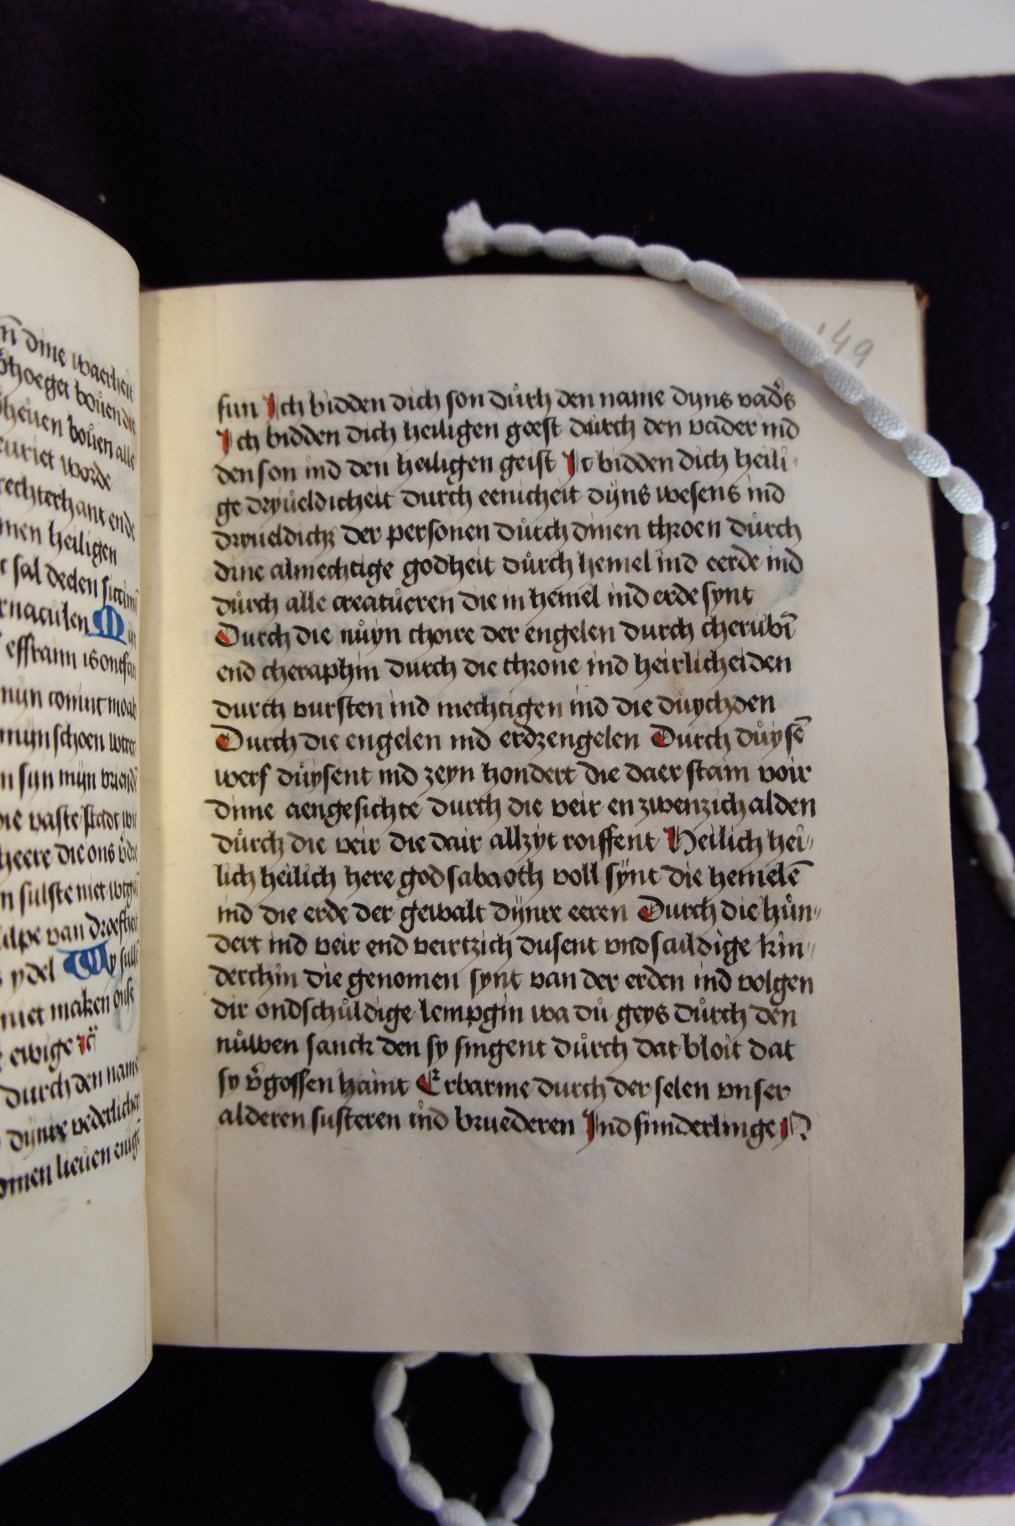 n dine waerheit
bouen die
heuen bouen alle
worde
rechterhant ende
men heiligen
sal deelen
rnaculen M
effrann is
mijn comut moab
mijn schoen
n sun mijn
die vaste stadt
heere die ons
n sulste niet
ulpe van
ydel Wy
niet maken onse
ewige
durch den name
dijnre vederlicher
omen lieuen
149
sun Ich bidden dich son dürch den name dyns vad's
Ich bidden dich heiligen geest dürch den vader ind
den son ind den heiligen geist It bidden dich heili
ge dryüeldicheit durch eenicheit dÿns wesens ind
der personen dürch dinen throen dürch
dine almechtige godheit dürch hemel ind eerde ind
dürch alle creatüeren die in hemel ind erde synt
Durch die nüyn choire der engelen durch cherubī
end cheraphin durch die throne ind heirlicheiden
durch vursten ind mechtigen ind die düychden
Durch die engelen ind erdzengelen Durch düysē
werf düysent ind zeyn hondert die daer stain voir
dinne aengesichte durch die veir en zwenzich alden
dürch die veir die dair allzyt roiffent Heilich hei
lich heilich here god sabaoth voll sÿnt die hemelē
ind die erde der gewalt dÿnre eeren Durch die hün
dert ind veir end veirtzich dusent vndsculdige kin
derchin die genomen synt van der erden ind volgen
dir ondschüldige lempgin wa dü geys dürch den
nüwen sanck den sy singent dürch dat bloit dat
sy v'gossen haint Erbarme durch der selen vnser
alderen susteren ind bruederen Ind sunderlinge N